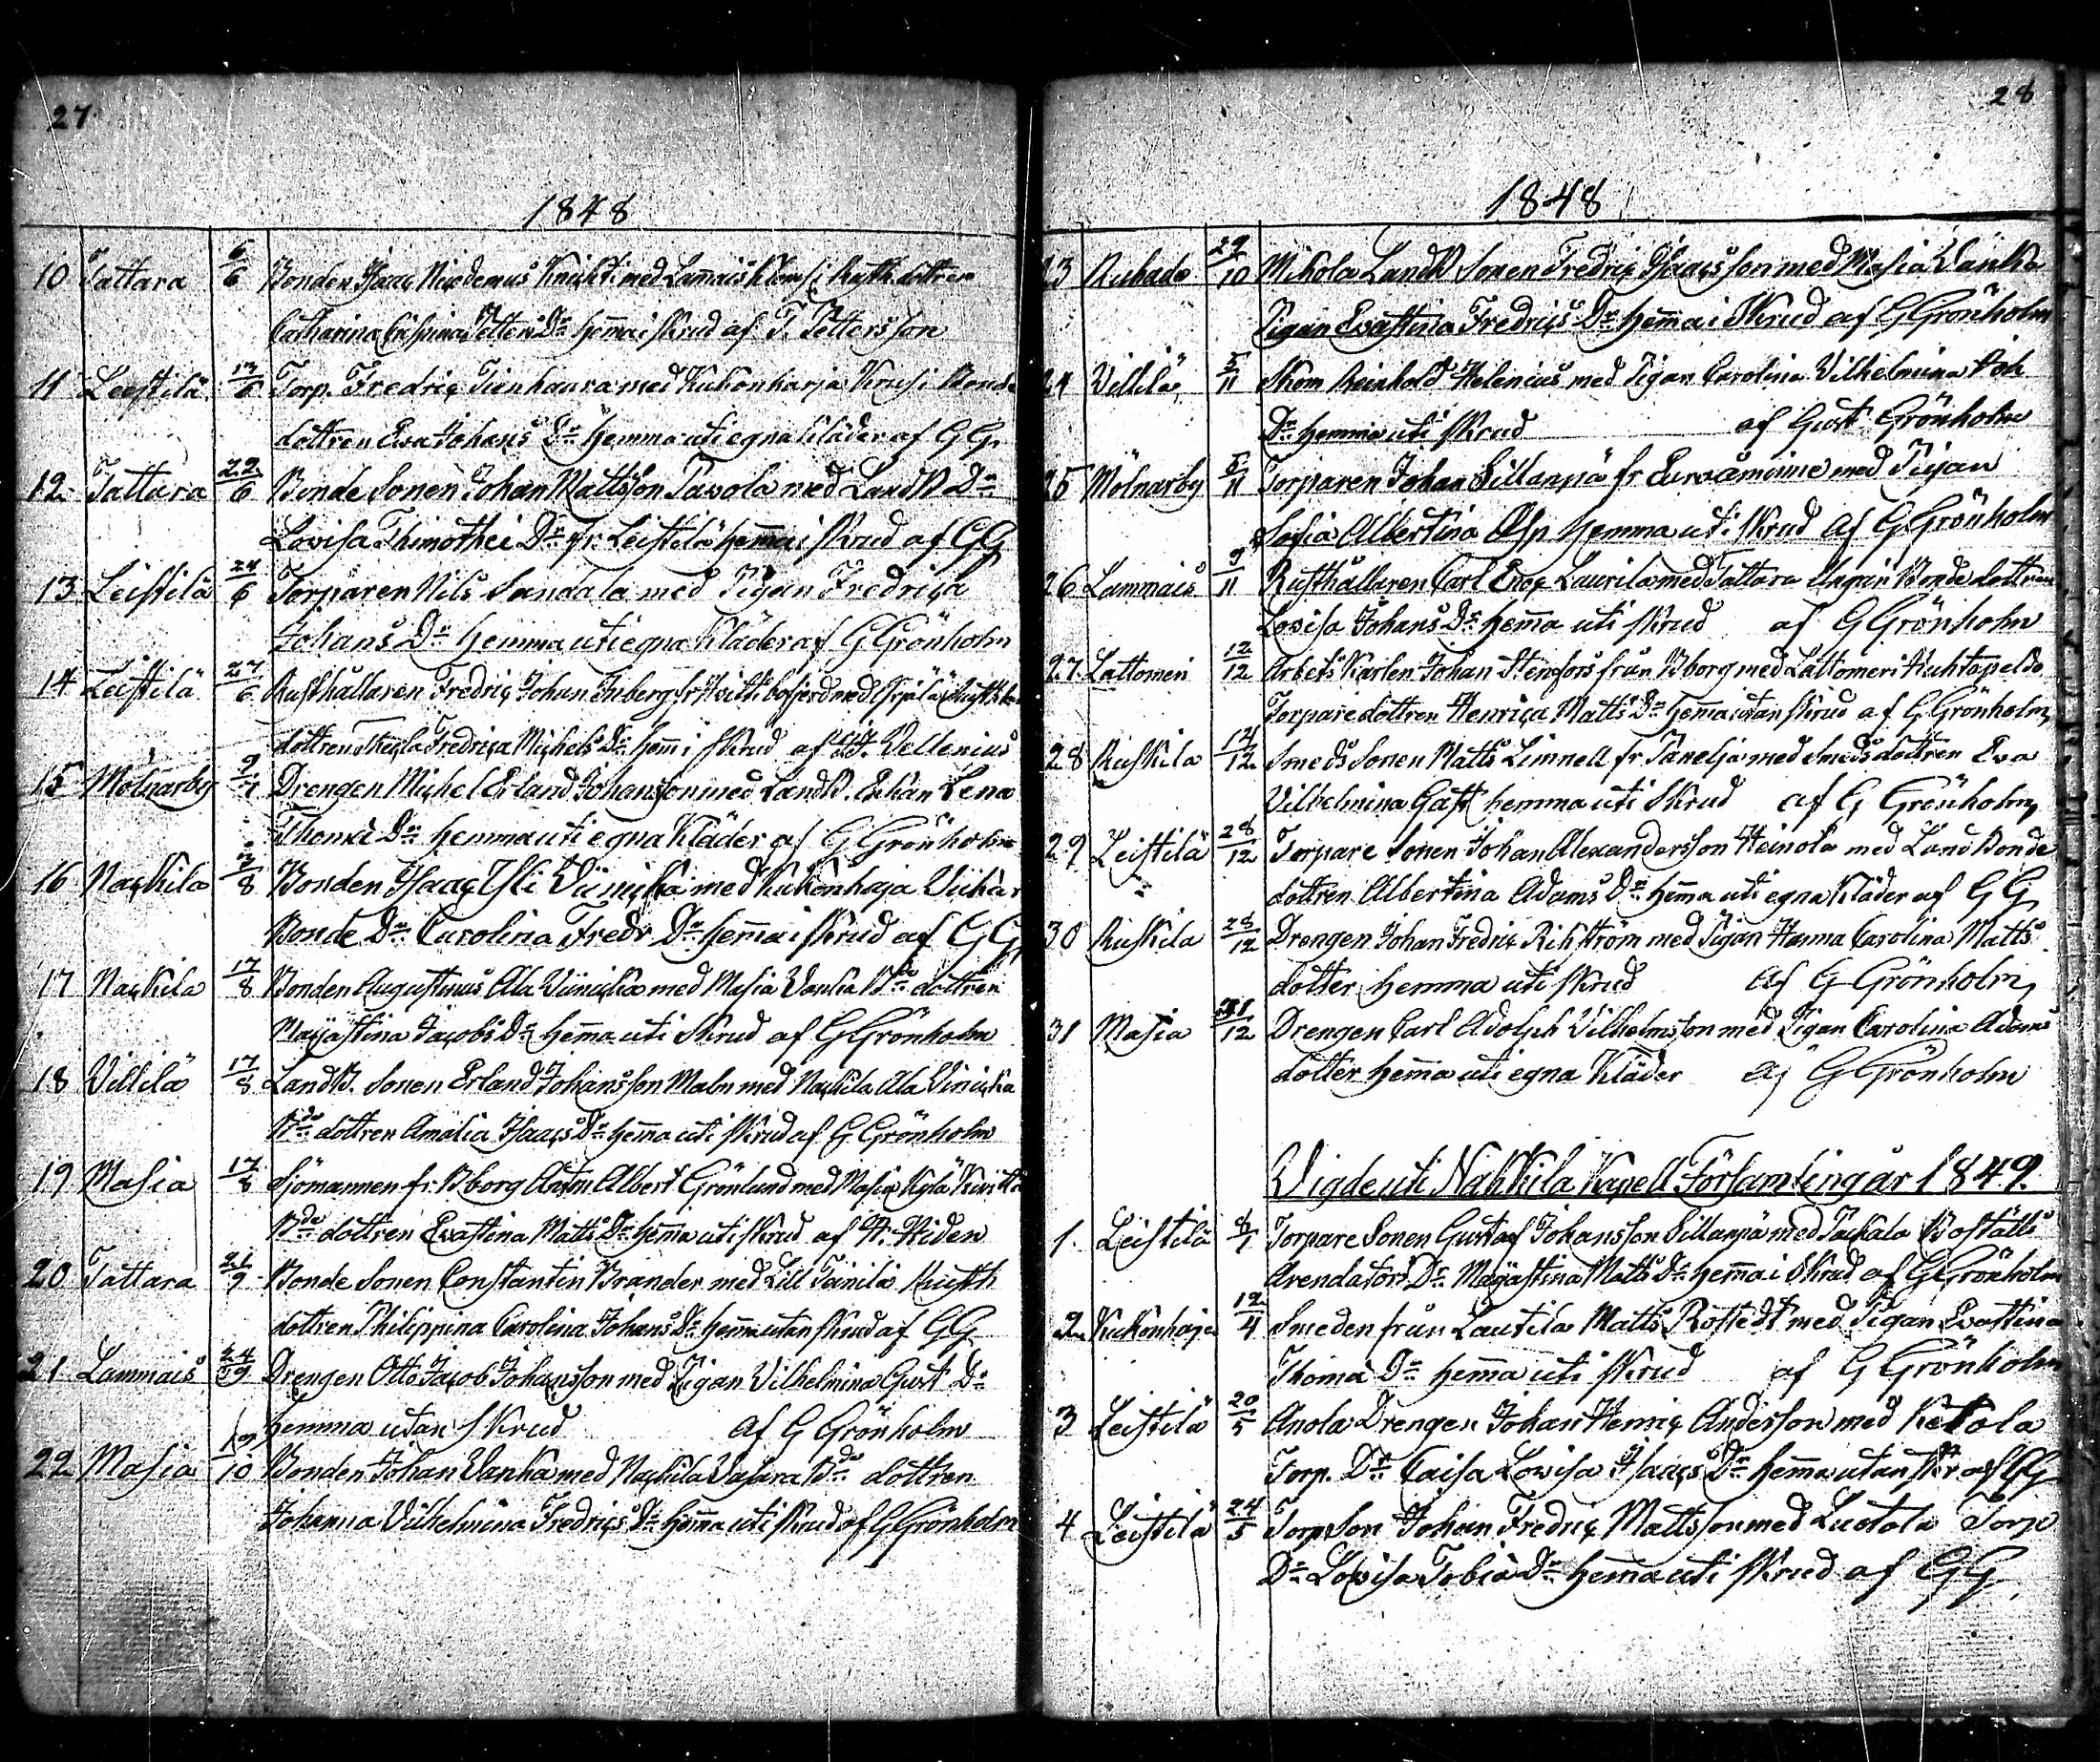 27
1848
10 Tattara 6/6 Bonden Isaac Nicodemus Knichti med Lammais Klomsi Rusth. dottren
Catharina Petters Dr hemma i skrud af F. Pettersson
11 Leistilä 17/6 Torp. Fredric Tienhaara med Kukonharja Krusi Bonde
dottren Eva Johans Dr Hemma uti egna Kläder af GG.
12 Tattara 22/6 Bonde Sonen Johan Mattsson Tavola med LandB Dr
Lovisa Thimothei Dr fr. Leistilä hemma i skrud af GG
13 Leistilä 24/6 Torparen Nils Sandala med Pigan Fredrica
Johans Dr hemma uti egna Kläder af G Grönholm
14 Leistilä 27/6 Rusthållaren Fredric Johan Enberg fr Hvittisbofjerd med Rusth
dottren Fredrica Michels Dr hem i skrud af Vellenius
15 Molnarby 9/7 Drengen Michel Erland Johansson med LandB. Enkan Lena
Thoma Dr hemma uti egna Kläder af G Grönholm
16 Nackila 13/8 Bonden Isaac Isti Viinicka med Kukonhaja Viikar
Bonde Dr Carolina Fredr Dr hemma i skrud af GG
17 Nackila 17/8 Bonden Augustinus Ala Viinicka med Masia Vanha Bde dottren
Majastina Jacobs Dr hemma uti Skrud af G Grönholm
18 Villilä 17/8 LandB. Sonen Erland Johansson Malm med Nackila Ala Viinicka
Bde dottren Amalia Isaacs Dr hemma uti skrud af G Grönholm
19 Masia 17/8 Sjömannen fr. Bborg Anton Albert Grönlund med Masia Kylä
Bde dottren Evastina Matts Dr hemma uti skrud af H. Hiden
20 Tattara 21/9 Bonde Sonen Constantin Brander med Lill Tainila Rusth
dottren Philippina Carolina Johans Dr hemma utan skrud af GG
21 Lammais 24/9 Drengen Otto Jacob Johansson med Pigan Vilhelmina Gust Dr
hemma utan skrud af G Grönholm
22 Masia 19/10 Bonden Johan Vanha med Nackila Vasara Bde dottren
Johanna Vilhelmina Fredrics Dr hemma uti skrud af G Grönholm
28
1848
23 Ruhade 29/10 Mikola LandB Sonen Fredric Isaacsson med Masia Vanha
Pigan Evastina Fredrics Dr hemma i Skrud af G Grönholm
24 Villilä 5/11 Skom Reinhold Helenius med Pigan Carolina Vilhelmina Joh
Dr hemma uti skrud af Gust Grönholm
25 Molnarby 5/11 Torparen Johan Sillanpä fr Euraåminne med Pigan
Sofia Albertina hemma uti skrud af G. Grönholm
26 Lammais 9/11 Rusthållaren Carl Enoc Laurila med Tattara Bonde dottren
Lovisa Johans Dr hemma uti skrud af G Grönholm
27 Lattomeri 12/12 Arbets Karlen Johan Stenfors från Bborg med Lattomeri
Torpare dottren Henrica Matts Dr hemma utan skrud af G Grönholm
28 Ruskila 14/12 Smeds Sonen Matts Limnell fr Tanelja med Smeds dottren Eva
Vilhelmina Gast hemma uti skrud af G Grönholm
29 Leistilä 28/12 Torpare Sonen Johan Alexandersson Heinola med Land Bonde
dottren Albertina Adams Dr hemma uti egna Kläder af GG
30 Ruskila 28/12 Drengen Johan Fredric Rikström med Pigan Hanna Carolina Matts
dotter hemma uti skrud af G Grönholm
31 Masia 31/12 Drengen Carl Adolph Vilhelmsson med Pigan Carolina Adams
dotter hemma uti egna Kläder af G Grönholm
Vigde uti Nakkila Kapell Församling år 1849.
1. Leistilä 8/1 Torpare Sonen Gustaf Johansson Sillanpä med Boställs
Arendators Dr Majastina Matts Dr hemma i Skrud af G Grönholm
2 Kukonhaja 12/4 Smeden från Lautila Matts Rostedt med Pigan Evastina
Thoma Dr hemma uti skrud af G Grönholm
3 Leistilä 20/5 Anola Drengen Johan Henric Andersson med Ketola
Torp. Dr Caisa Lovisa Isaacs Dr hemma utan skr af GG
4 Leistilä 24/5 Torp Son Johan Fredric Mattsson med Luotola Torp
Dr Lovisa Tobia Dr hemma uti skrud af GG